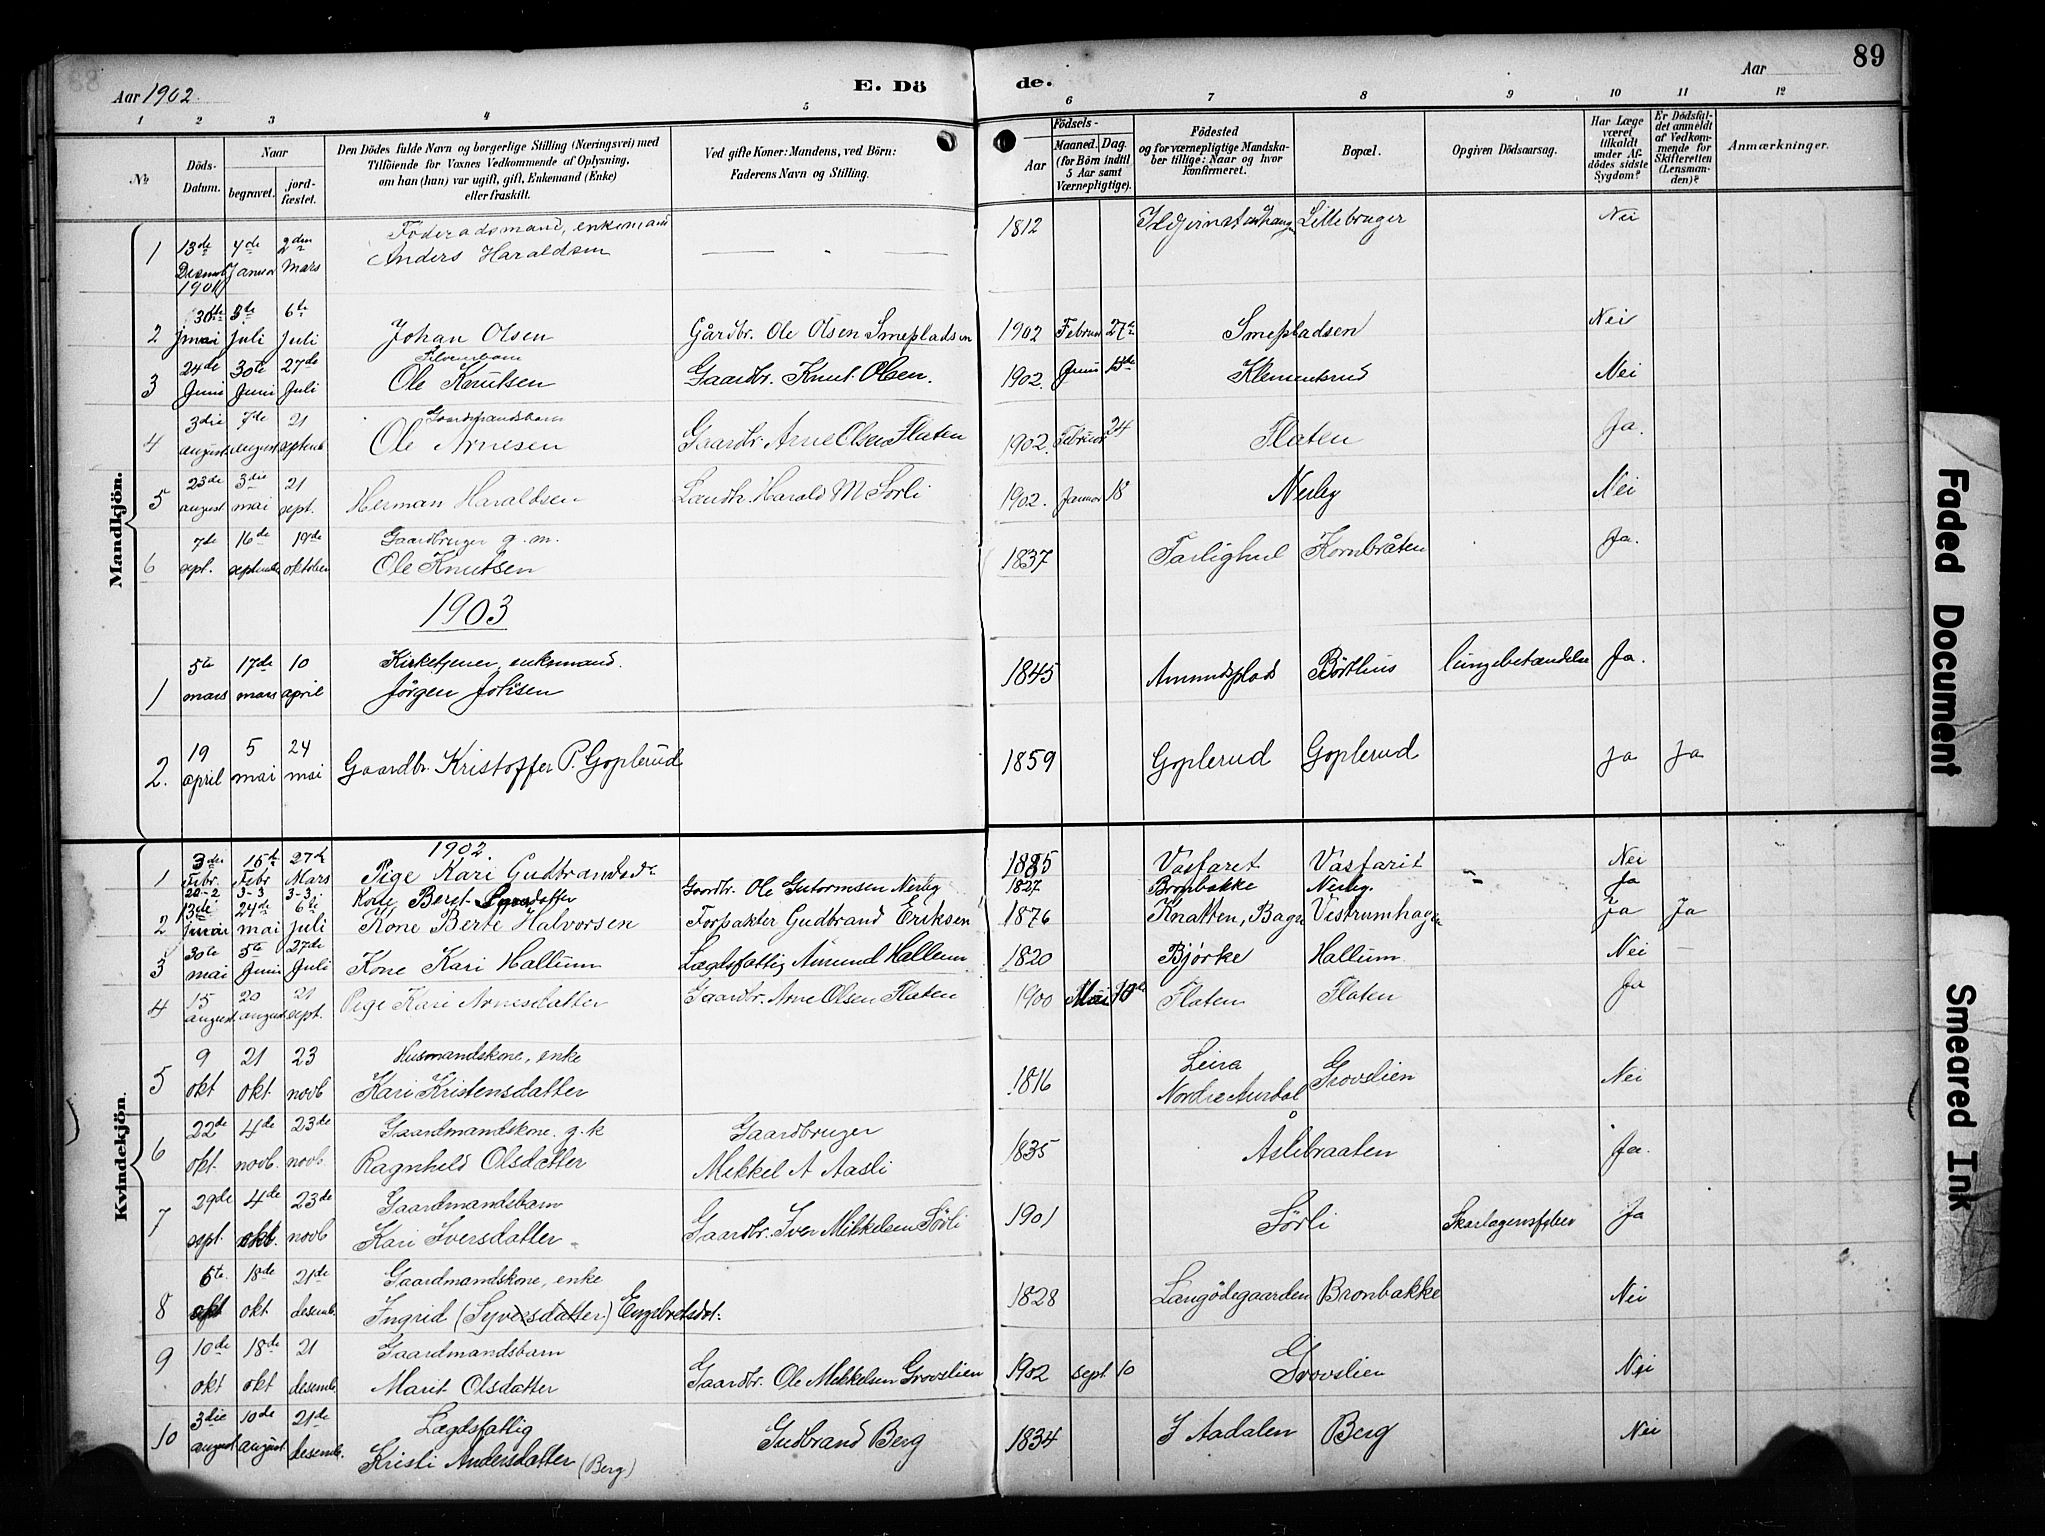 88
Aar 1902.
E. Dö
de.
Aar
89
1 2 3 4 5 6 7 8 9 10 11 12
No
Döds-Datum.
Naar
begravet.
jord-fæstet.
Den Dödes fulde Navn og borgerlige Stilling (Næringsvei) med
Tilföiende for Voxnes Vedkommende af Oplysning,
om han (hun) var ugift, gift, Enkemand (Enke)
eller fraskilt.
Ved gifte Koner: Mandens, ved Börn:
Faderens Navn og Stilling.
Födsels-
Aar
Maaned. Dag.
(for Börn indtil
5 Aar samt
Værnepligtige).
Födested
og for værnepligtige Mandska-
ber tillige: Naar og hvor
konfirmeret.
Bopæl.
Opgiven Dödsaarsag.
Har Læge
været
tilkaldt
under Af-
dödes sidste
Sygdom?
Er Dödsfal-
det anmeldt
af Vedkom-
mende for
Skifteretten
(Lensman-
den)?
Anmærkninger.
Mandkjön.
1 13de 4de 2den Föderaadsmand, enkemand 1812 Lillebruger Nei
Desemb Januar Mars Anders Haraldsen
1901
30te 3de 6te
2 mai juli juli Johan Olsen Gårdbr. Ole Olsen Smepladsen 1902 Februar 27de Smepladsen Nei
24de 30te 27de
3 Juni Juni Juli Ole Knutsen Gaardbr. Knut Olsen. 1902. Juni Klementsrud Nei
3die 7de 21 Gaardmandsbarn
4 august august septemb Ole Arnesen Gaardbr. Arne Olsen Flaten 1902. Februar 24 Flaten Ja.
23de 3die 21
5 august mai sept. Herman Haraldsen Harald M Sörli 1902. Januar 18 Nerby Nei
7de 16de 19de Gaardbruger g.m.
6 sept. september oktober Ole Knutsen 1837 Kornbråten Ja.
1903
5te 17de 10 Kirketjener, enkemand.
1 mars mars april Jörgen 1845 Amundsplads Börthus lungebetændelse Ja.
19 5 24
2. april mai mai Gaardbr. Kristoffer P. Goplerud 1859 Goplerud Goplerud Ja Ja
Kvindekjön.
1902.
3de 15te 27de
1 Febr. Febr Mars Pige Kari Gudbrandsdr 1885 Vasfaret Vasfaret Nei
20-2 3-3 3-3 Kone Berit Gaardbr. Ole Gutormsen Nerby 1827 Bronbakke Nerby. Ja
13de 24de 6te
2 mai mai juli Kone Berte Halvorsen Forpakter Gudbrand Eriksen 1876 Knatten, Bagn Vestrumhagen Ja Ja
30te 5te 27de
3 mai Juni Juli Kone Kari Hallum Lægdsfattig Amund Hallum 1820 Bjørke Hallum Nei
15 20 21
4 august. august sept. Pige Kari Arnesdatter Gaardbr. Arne Olsen Flaten 1900 Mai 10de Flaten Flaten Ja
9 21 23 Husmandskone, enke Leira
5 okt okt. novb Kari Kristensdatter 1816 Nordre Aurdal Grovslien Nei
22de 4de 23de Gaardmandskone. g.k Gaardbruger
6 okt. novb. novb. Ragnhild Olsdatter Mikkel A Aasli 1835 Åslibraaten Ja.
29de 4de 23de Gaardmandsbarn
7 sept. okt. novb Kari Iversdatter Gaardbr. Iver Mikkelsen Sörli 1901 Sörli Skarlagensfeber Ja
6te. 18de 21de Gaardmandskone, enke
8 okt okt. desemb. Ingrid (Syversdatter) Engebretsdt. 1828 Langödegaarden Bronbakke Nei
10de 18de 21 Gaardmandsbarn
9 okt okt desemb. Marit Olsdatter Gaardbr. Ole Mikkelsen Grovslien 1902 sept. 10 Grovslien Nei
3die 10de 21de Lægdsfattig
10 august august desemb. Kristi Andersdatter (Berg) Gudbrand Berg 1834 I Aadalen Berg Nei
Faded Document
Smeared Ink